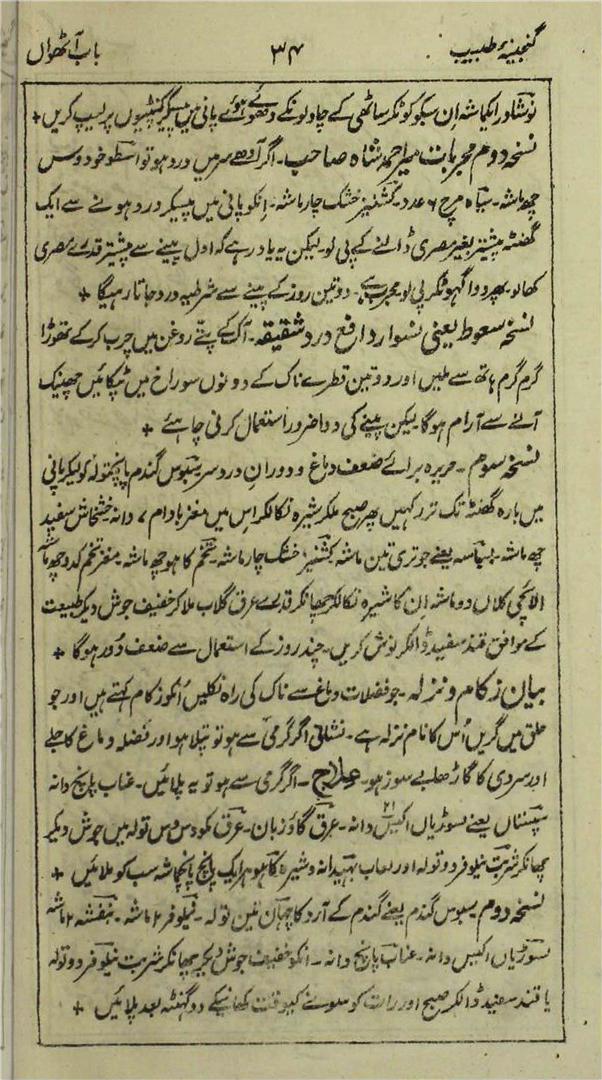 گنجینۂ طبیب ۳۴ باب آٹھواں
نوشادر ایکماشہ اِن سبکو کوٹکر ساٹھی کے چاولونکے دھوئے ہوئے پانی میں پیسکر کنپٹیوں پر لیپ کریں +
نسخہ دوم مجربات میر احمد شاہ صاحب۔ اگر آدھے سر میں درد ہو تو اسطوخودوس
چھ ماشہ۔ سیاہ مرچ ۶ عدد۔ کشنیز خشک چار ماشہ۔ اِنکو پانی میں پیسکر درد ہونے سے ایک
گھنٹہ پیشتر بغیر مصری ڈالنے کے پی لو۔ لیکن یہ یاد رہے کہ اول پینے سے پیشتر قدرے مصری
کھا لو۔ پھر دوا گھوٹکر پی لو مجرب ہے۔ دو تین روز کے پینے سے شرطیہ درد جاتا رہیگا +
نسخہ سعوط یعنی نسوار دافع درد شقیقہ۔ آک کے پتے روغن میں چرب کر کے تھوڑا
گرم گرم ہاتھ سے ملیں اور دو تین قطرے ناک کے دونوں سوراخ میں ٹپکائیں چھینک
آنے سے آرام ہوگا۔ لیکن پینے کی دوا ضرور استعمال کرنی چاہئے +
نسخہ سوم۔ حریرہ برائے ضعف دماغ و دوران درد سر سبوس گندم پانچتولہ کو لیکر پانی
میں بارہ گھنٹہ تک تر رکہیں پھر صبح ملکر شیرہ نکالکر اِس میں مغز بادام ۷ دانہ خشخاش سفید
چھ ماشہ۔ بسباسہ یعنے جوتری تین ماشہ کشنیز خشک چار ماشہ۔ تخم کاہو چھ ماشہ۔ مغز تخم کدو چھ ماشہ
الائچی کلاں دو ماشہ اِن کا شیرہ نکالکر چھانکر قدرے عرق گلاب ملا کر خفیف جوش دیکر طبیعت
کے موافق قند سفید ڈالکر نوش کریں۔ چند روز کے استعمال سے ضعف دُور ہوگا +
بیان زکام و نزلہ۔ جو فضلات دماغ سے ناک کی راہ نکلیں اُنکو زکام کہتے ہیں اور جو
حلق میں گریں اُس کا نام نزلہ ہے۔ نشانی اگر گرمی سے ہو تو پتلا ہو اور فضلہ دماغ کا جلے
اور سردی کا گاڑھا بے سوز ہو۔ علاج۔ اگر گرمی سے ہو تو یہ پلائیں۔ عناب پانچ دانہ
سپستاں یعنے لسوڑیاں اکیس ۲۱ دانہ۔ عرق گاؤزبان۔ عرق مکو دس دس تولہ میں جوش دیکر
چھانکر شربت نیلوفر دو تولہ اور لعاب بہیدانہ و شیرہ کاہو ہر ایک پانچ پانچماشہ سب کو ملائیں +
نسخہ دوم سبوس گندم یعنے گندم کے آرد کا چہان تین تولہ۔ نیلوفر ۶ ماشہ۔ بنفشہ ۶ ماشہ
لسوڑیاں اکیس دانہ۔ عناب پانچ دانہ۔ انکو خفیف جوش دیکر چھانکر شربت نیلوفر دو تولہ
یا قند سفید ڈالکر صبح اور رات کو سوتے کیوقت کھانیکے دو گہنٹہ بعد پلائیں +